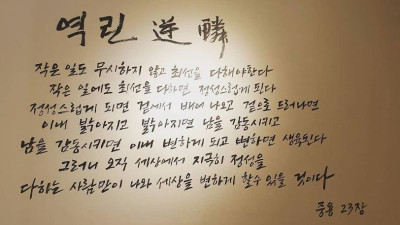 역린 逆鱗
작은 일도 무시하지 않고 최선을 다해야한다
작은 일에도 최선을 다하면 정성스럽게 된다
정성스럽게 되면 겉에서 배어 나오고 겉으로 드러나면
이내 밝아지고 밝아지면 남을 감동시키고
남을 감동시키면 이내 변하게 되고 변하면 생육된다
그러니 오직 세상에서 지극히 정성을
다하는 사람만이 나와 세상을 변하게 할수 있을 것이다
중용 23장